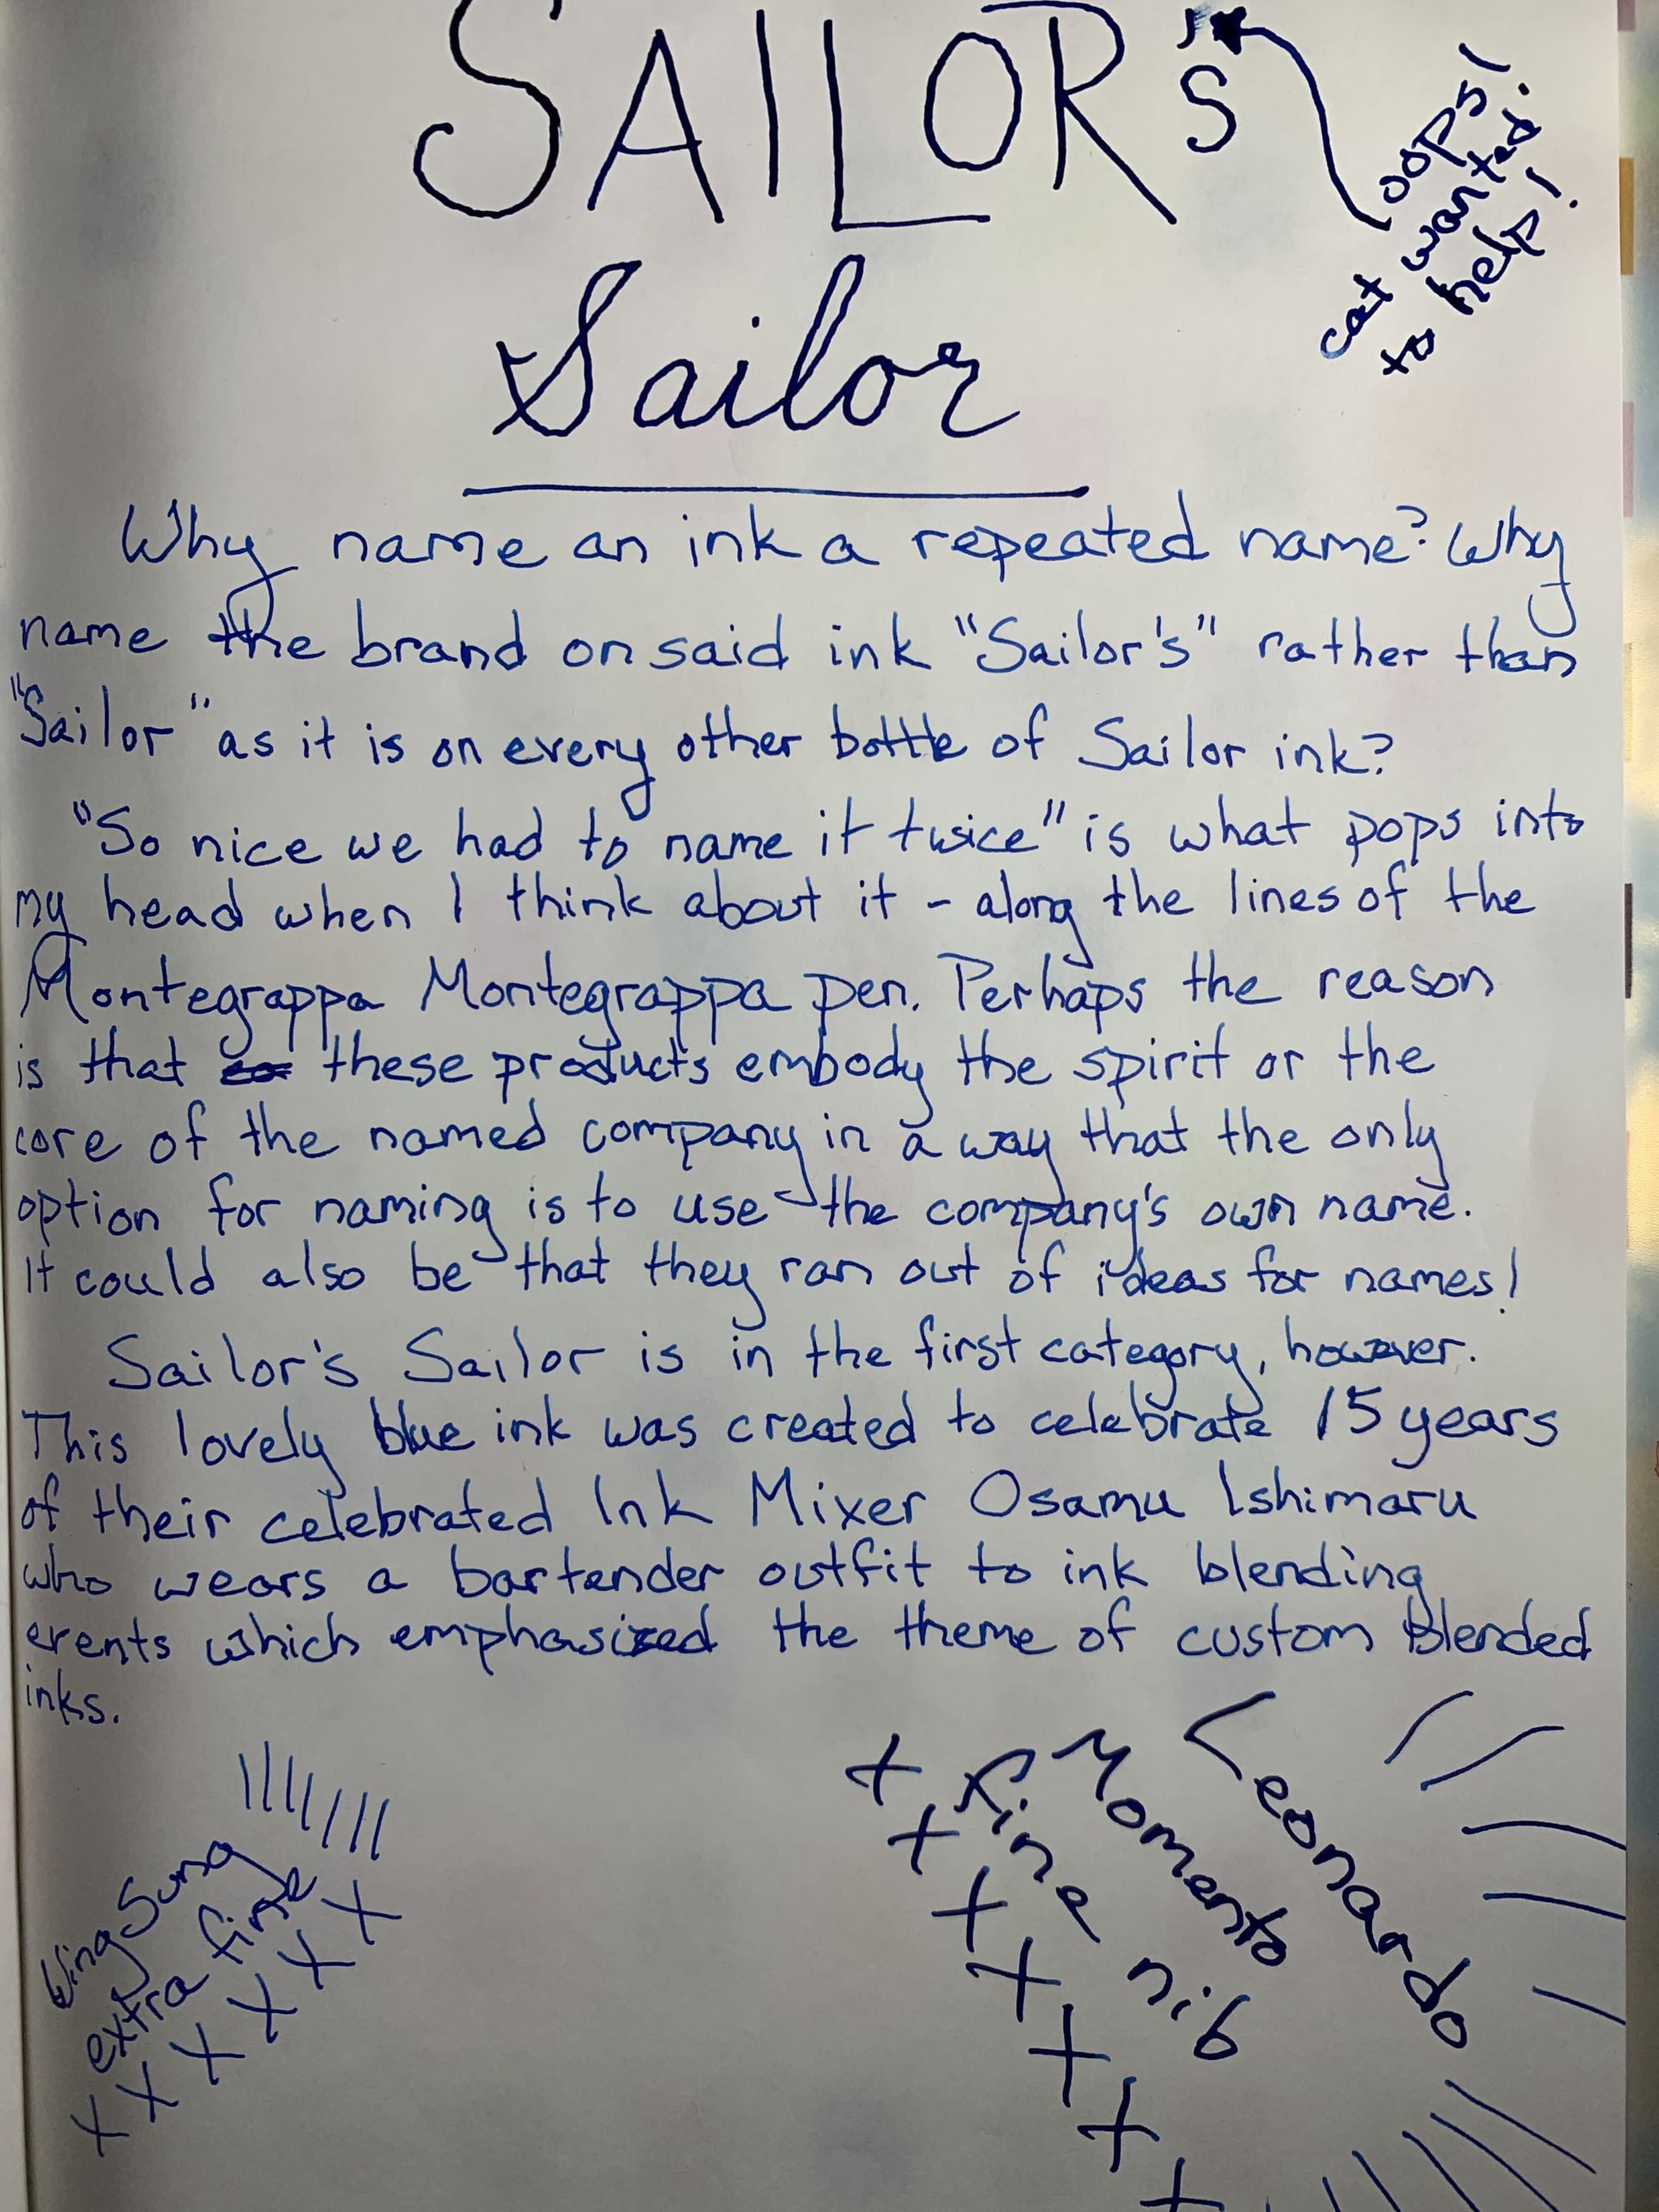 SAILOR's
oops!
cat wanted
to help!
Sailor
Why name an ink a repeated name? Why
name the brand on said ink "Sailor's" rather than
"Sailor" as it is on every other bottle of Sailor ink?
"So nice we had to name it twice" is what pops into
my head when I think about it - along the lines of the
Montegrappa Montegrappa pen. Perhaps the reason
is that these products embody the spirit or the
core of the named company in a way that the only
option for naming is to use the company's own name.
It could also be that they ran out of ideas for names!
Sailor's Sailor is in the first category, however.
This lovely blue ink was created to celebrate 15 years
of their celebrated Ink Mixer Osamu Ishimaru
who wears a bartender outfit to ink blending
events which emphasized the theme of custom blended
inks.
Wing Sung
extra fine
x x x x x x
Leonardo
Momento
fine nib
+ + + + + + +